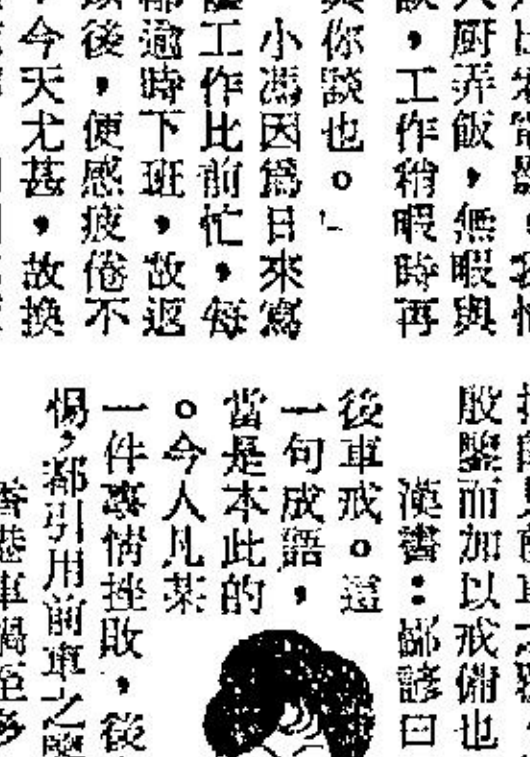 入厨弄飯，無暇與
談，工作稍暇時再
與你談也。」
小馮因爲日來寫
工作比前忙，每
都逾時下班，故返
後，便感疲倦不
今天尤甚，故換
殷鑒而加以戒備也
漢書：鄙諺曰
後車戒。這
一句成語，
當是本此的
。今人凡某
一件事情挫敗，後
惕，都引用前車之鑒
香港車禍至多